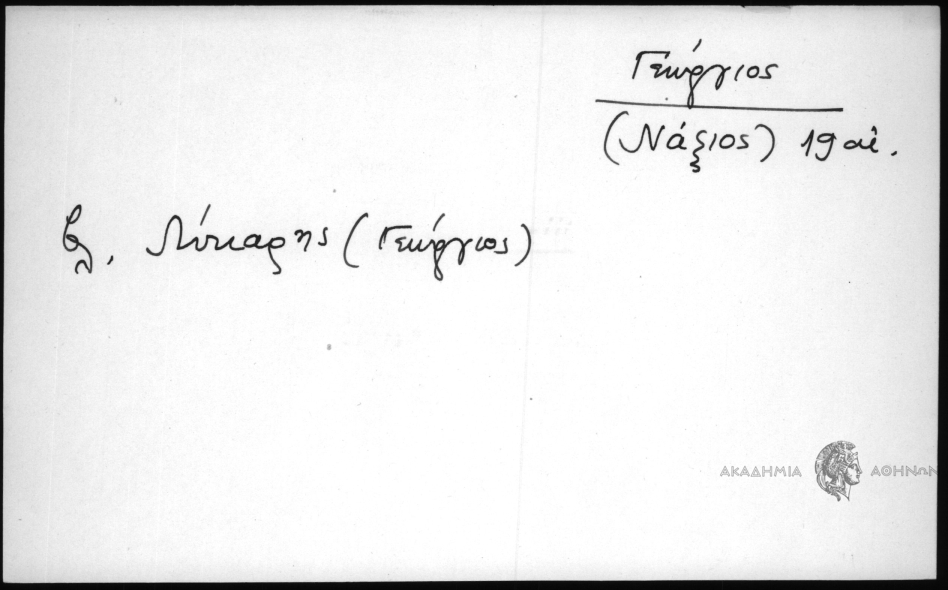 Γεώργιος
(Νάξιος) 19 αἰ.
βλ. Λύκαρης (Γεώργιος)
ΑΚΑΔΗΜΙΑ ΑΘΗΝΩΝ